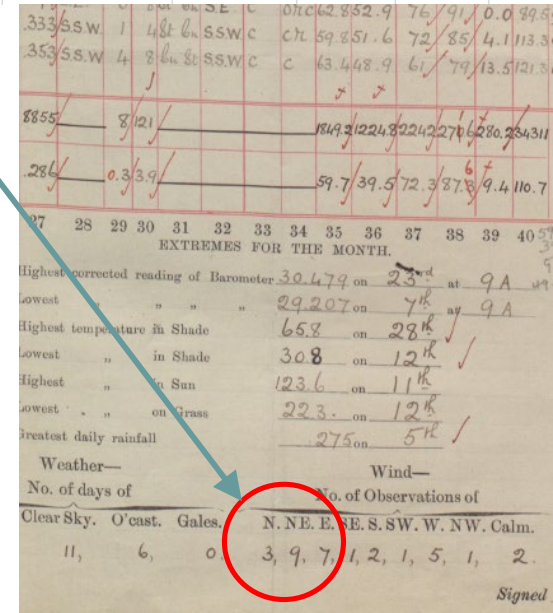 S.E.
.333 S.S.W 1 S.S.W c cr 59.8 51.6 72 85 4.1 113.3
.353 S.S.W 4 8 S.S.W c c 63.4 48.9 61 79 13.5 121.3
8855 8 121 1849.2 1224.8 2242 280.2 34311
.286 0.3 3.9 59.7 39.5 72.3 9.4 110.7
27 28 29 30 31 32 33 34 35 36 37 38 39 40
EXTREMES FOR THE MONTH.
Highest corrected reading of Barometer 30.479 on 23rd at 9 A
Lowest " " " " 29.207 on 7th at 9 A
Highest temperature in Shade 65.8 on 28th
Lowest " in Shade 30.8 on 12th
Highest " in Sun 123.6 on 11th
Lowest " " on Grass 22.3. on 12th
Greatest daily rainfall .275 on 5th
Weather— Wind—
No. of days of No. of Observations of
Clear Sky. O'cast. Gales. N. NE. E. SE. S. SW. W. NW. Calm.
11, 6, 0. 3, 9, 7, 1, 2, 1, 5, 1, 2.
Signed